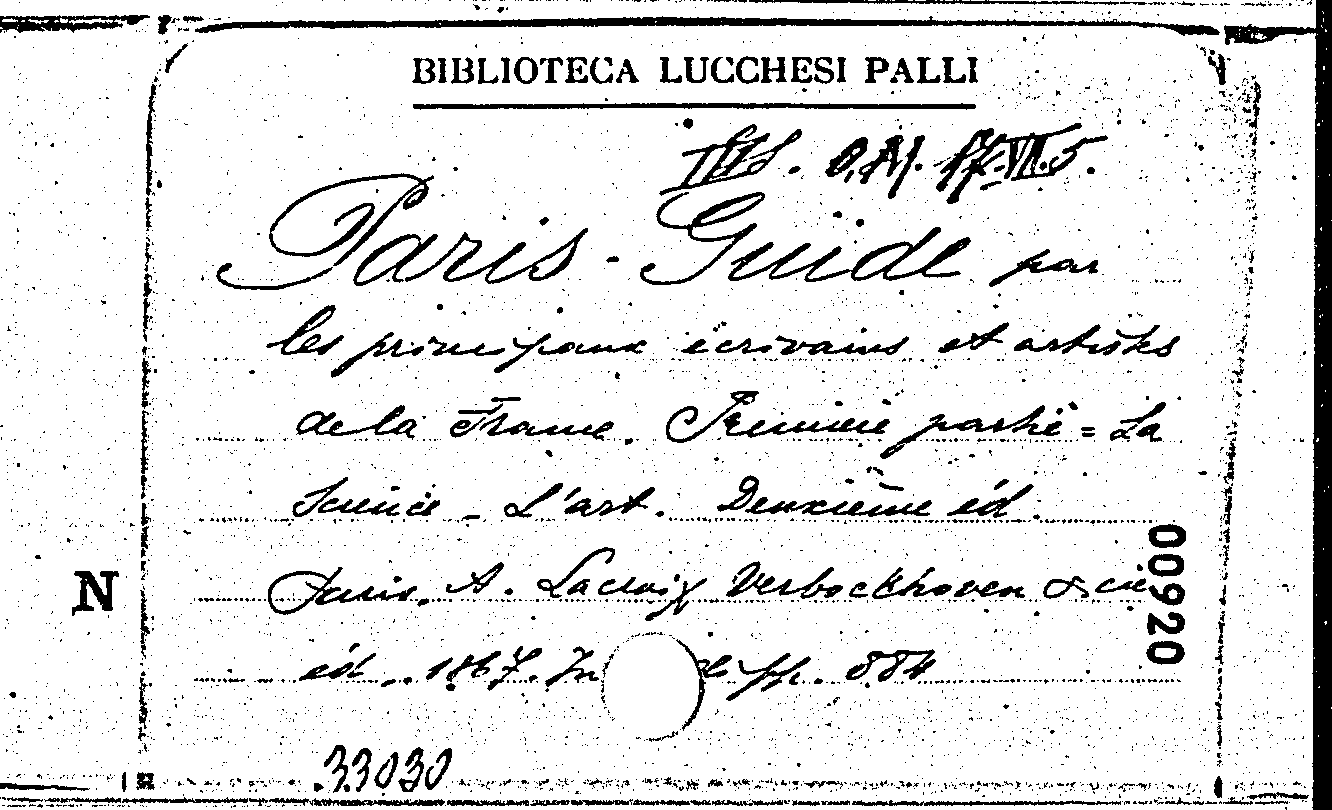 BIBLIOTECA LUCCHESI PALLI
VII.5.
Paris - Guide par
les principaux écrivains et artistes
de la France. Première partie = La
Science - L'art. Deuxième éd.
Paris, A. Lacroix Verboekhoven & cie
éd. 1867. In di pp. 884
33030
N
00920